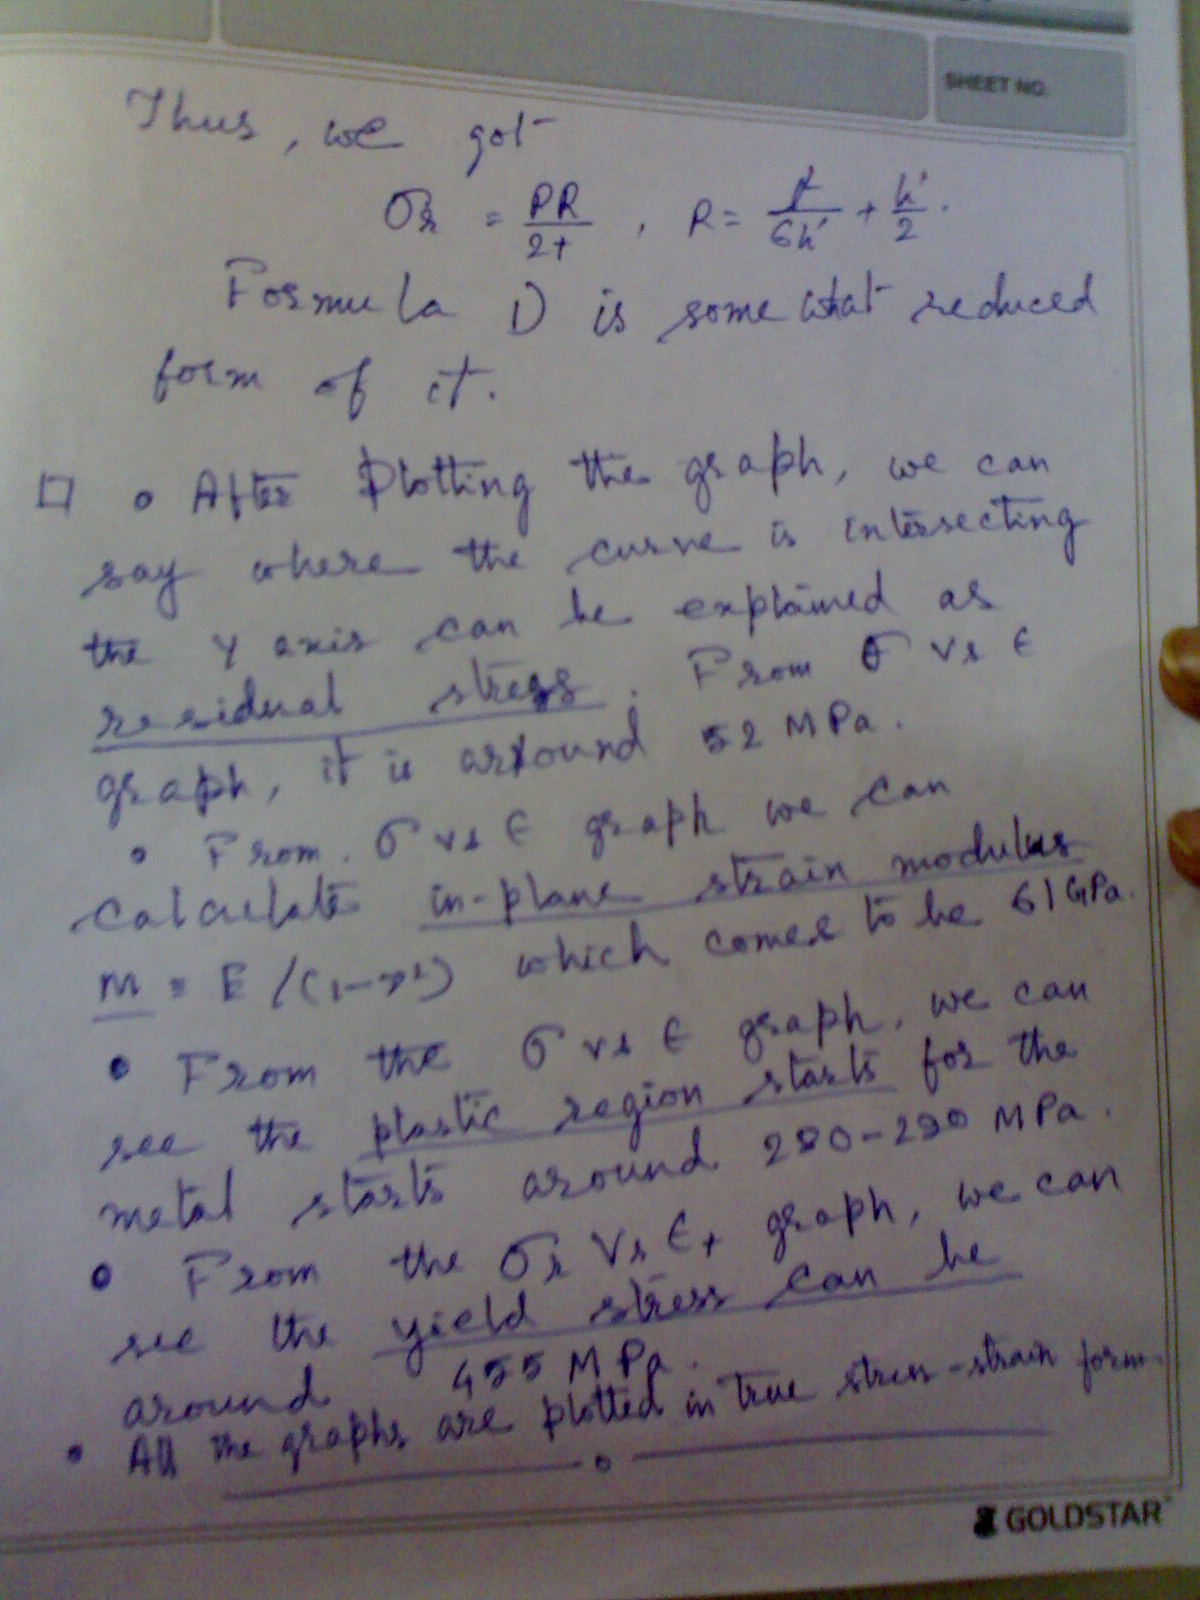 SHEET NO.
Thus, we got
σr = PR/2t , R = l²/6h' + h'/2 .
Formula 1) is somewhat reduced
form of it.
□ • After Plotting the graph, we can
say where the curve is intersecting
the Y axis can be explained as
residual stress. From σ vs ε
graph, it is around 52 MPa.
• From σ vs ε graph we can
calculate in-plane strain modulus
M = E/(1-ν²) which comes to be 61GPa.
• From the σ vs ε graph, we can
see the plastic region starts for the
metal starts around 280-290 MPa.
• From the σr vs εt graph, we can
see the yield stress can be
around 455 MPa.
• All the graphs are plotted in true stress-strain form.
GOLDSTAR